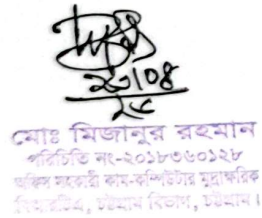 ২৩/০৪
২৫
মোঃ মিজানুর রহমান
পরিচিতি নং-২০১৮৩৬০১২৮
অফিস সহকারী কাম-কম্পিউটার মুদ্রাক্ষরিক
চট্টগ্রাম বিভাগ, চট্টগ্রাম।